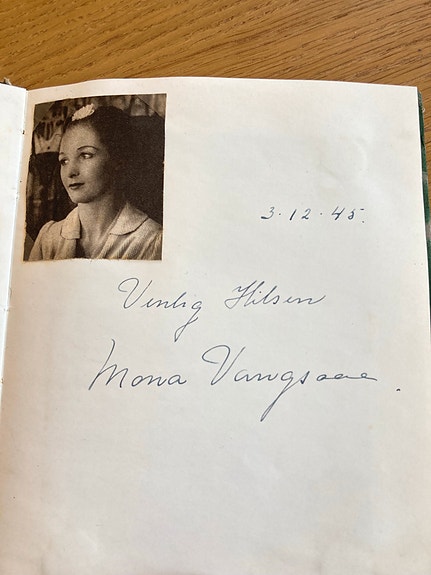 3·12·45.
Venlig Hilsen
Mona Vangsaae.